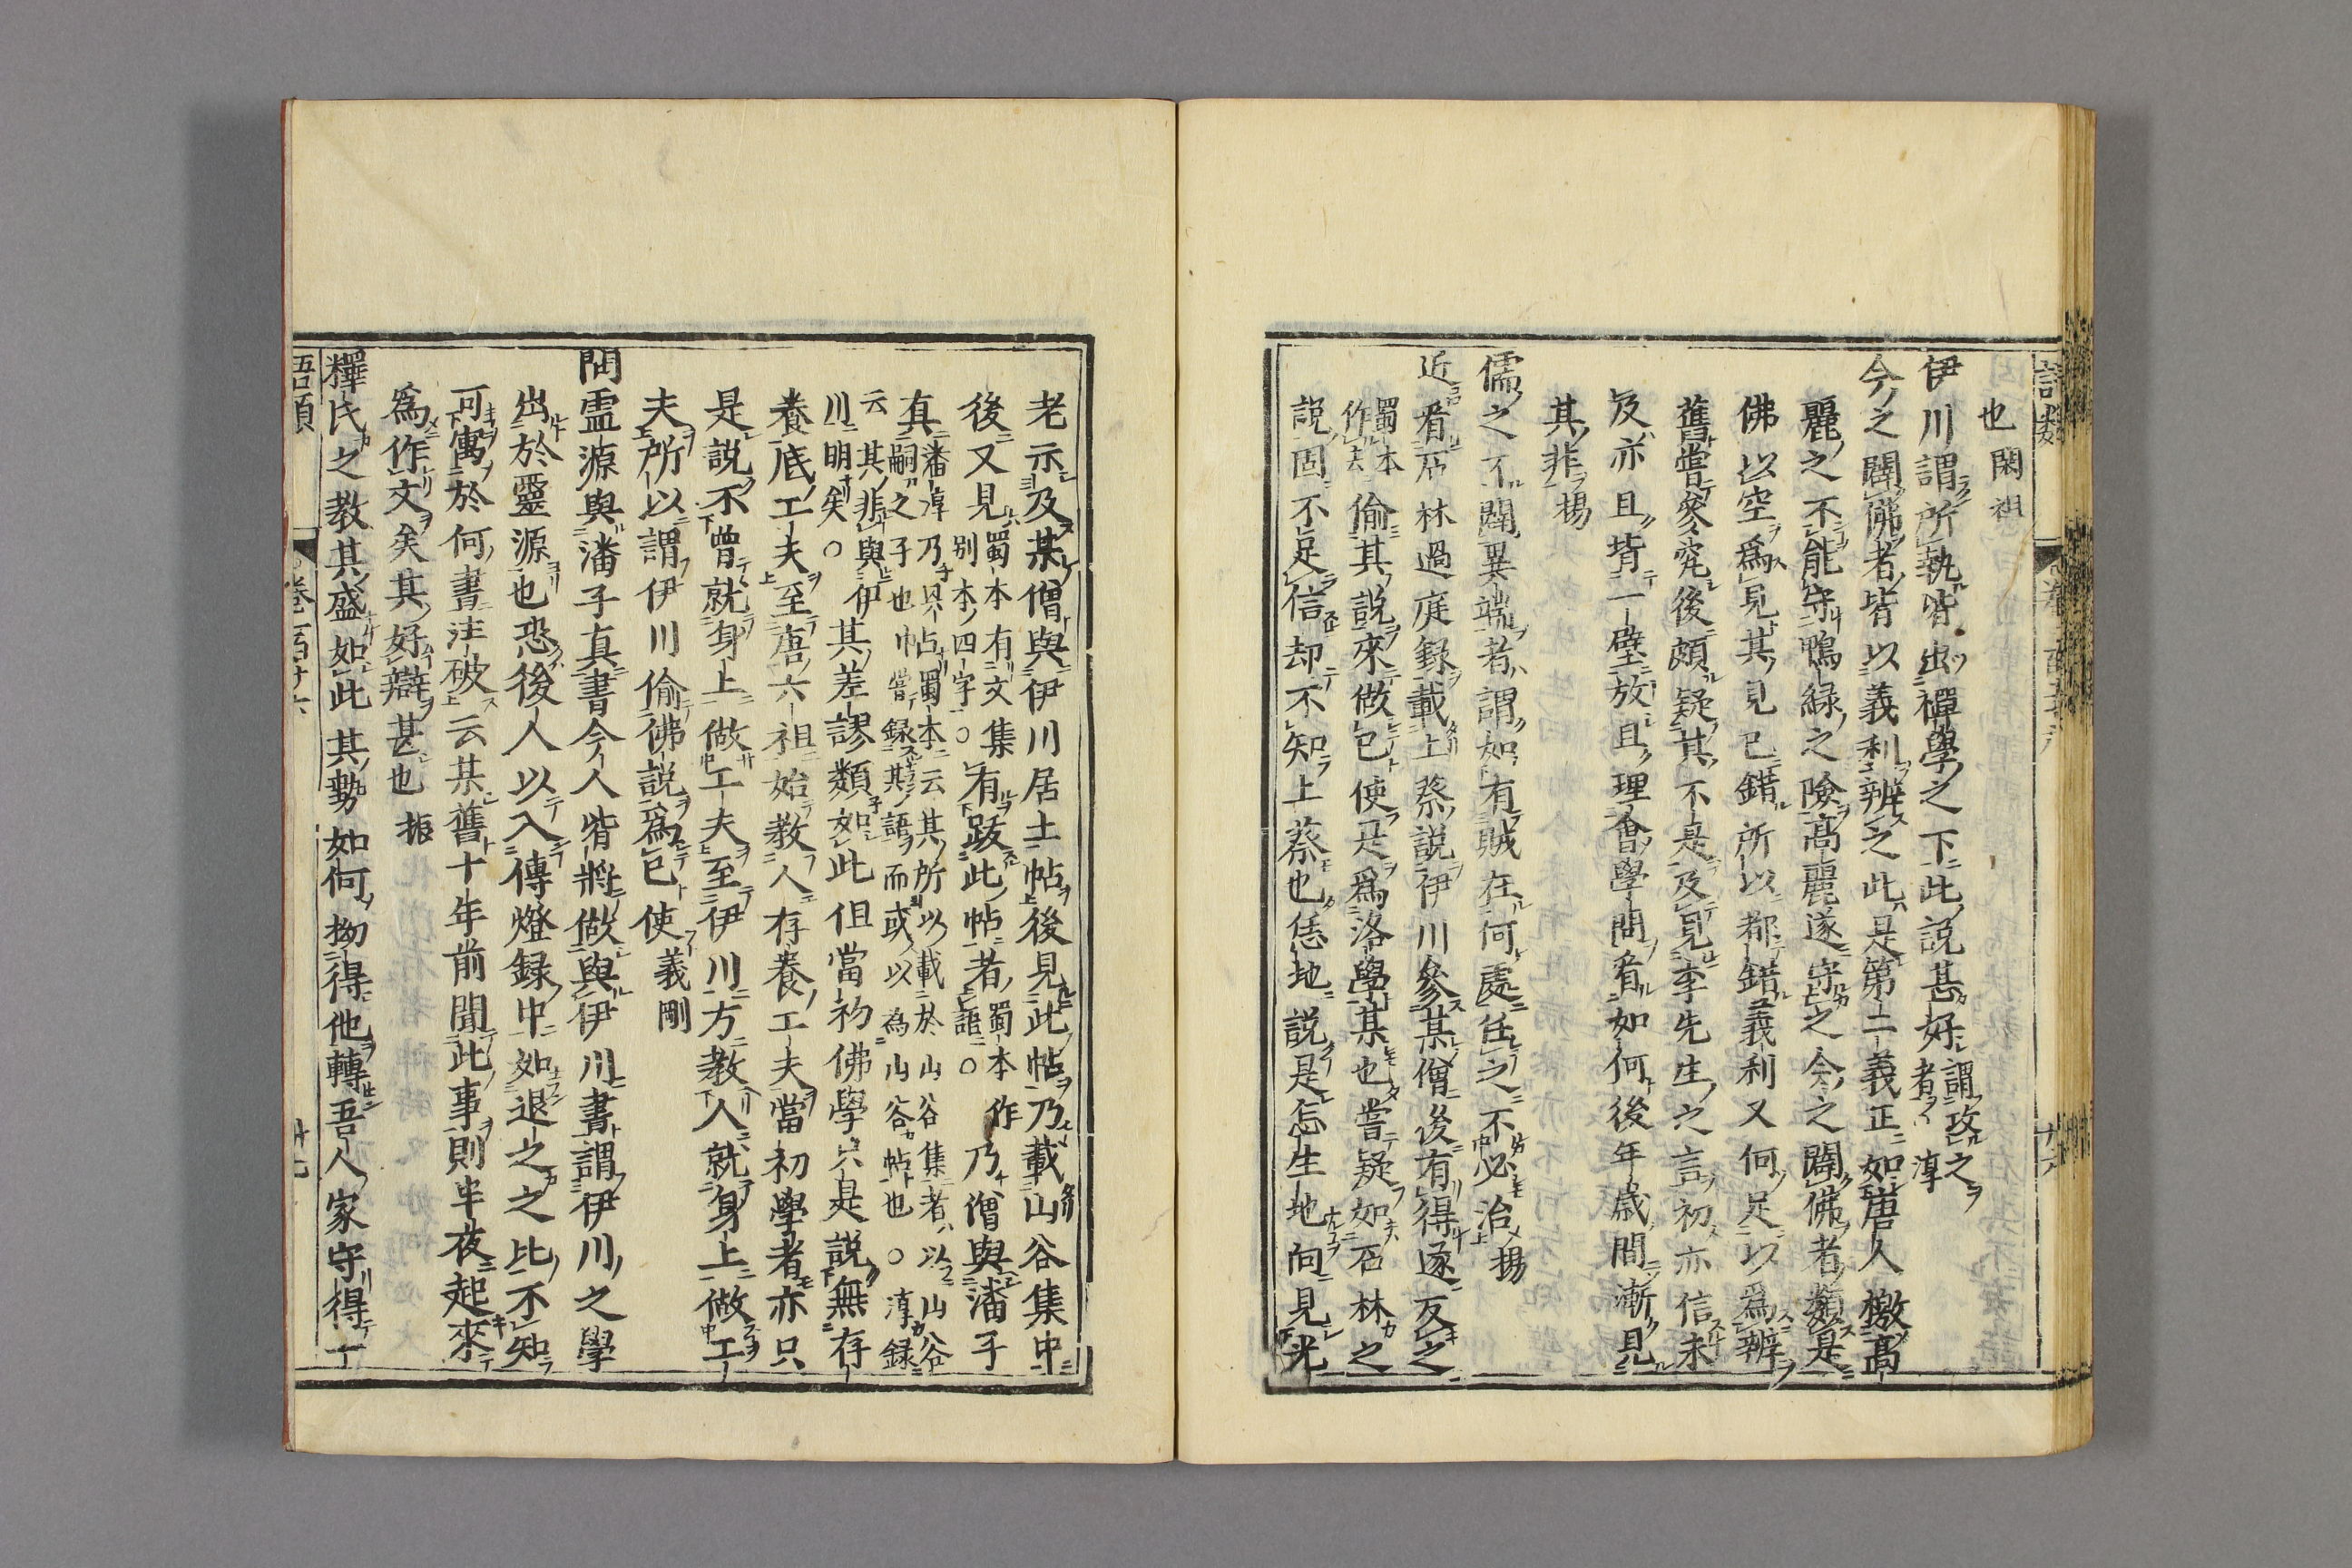 語類
卷一百二十六
廿六
也閎祖
伊川謂所執皆出禪學之下此說甚好謂攻之者淳
今之闢佛者皆以義利辨之此是第二義正如唐人檄高
麗之不能守鴨綠之險高麗遂守之今之闢佛者類是
佛以空爲見其見已錯所以都錯義利又何足以爲辨
舊嘗參究後頗疑其不是及見李先生之言初亦信未
及亦且背一壁放且理會學問看如何後年歲間漸見
其非揚
儒之不闢異端者謂如有賊在何處任之不必治揚
近看石林過庭錄載上蔡說伊川參某僧後有得遂反之
蜀本作去偷其說來做己使是爲洛學某也嘗疑如石林之
說固不足信却不知上蔡也恁地說是怎生地向見光
老示及某僧與伊川居士帖後見此帖乃載山谷集中
後又見蜀本有文集別本四字○有跋此帖者蜀本作語○乃僧與潘子
真潘淳乃興嗣之子也帖蜀本云其所以載於山谷集者以山谷嘗錄其語而或以爲山谷帖也○淳錄
云其非與伊川明矣○其差謬類如此但當初佛學只是說無存
養底工夫至唐六祖始教人存養工夫當初學者亦只
是說不曾就身上做工夫至伊川方教人就身上做工
夫所以謂伊川偷佛說爲己使義剛
問靈源與潘子真書今人皆將做與伊川書謂伊川之學
出於靈源也恐後人以入傳燈錄中如退之之比不知
可寓於何書注破云某舊十年前聞此事則半夜起來
爲作文矣其好辯甚也振
釋氏之教其盛如此其勢如何拗得他轉吾人家守得一
語類
卷一百廿六
廿七